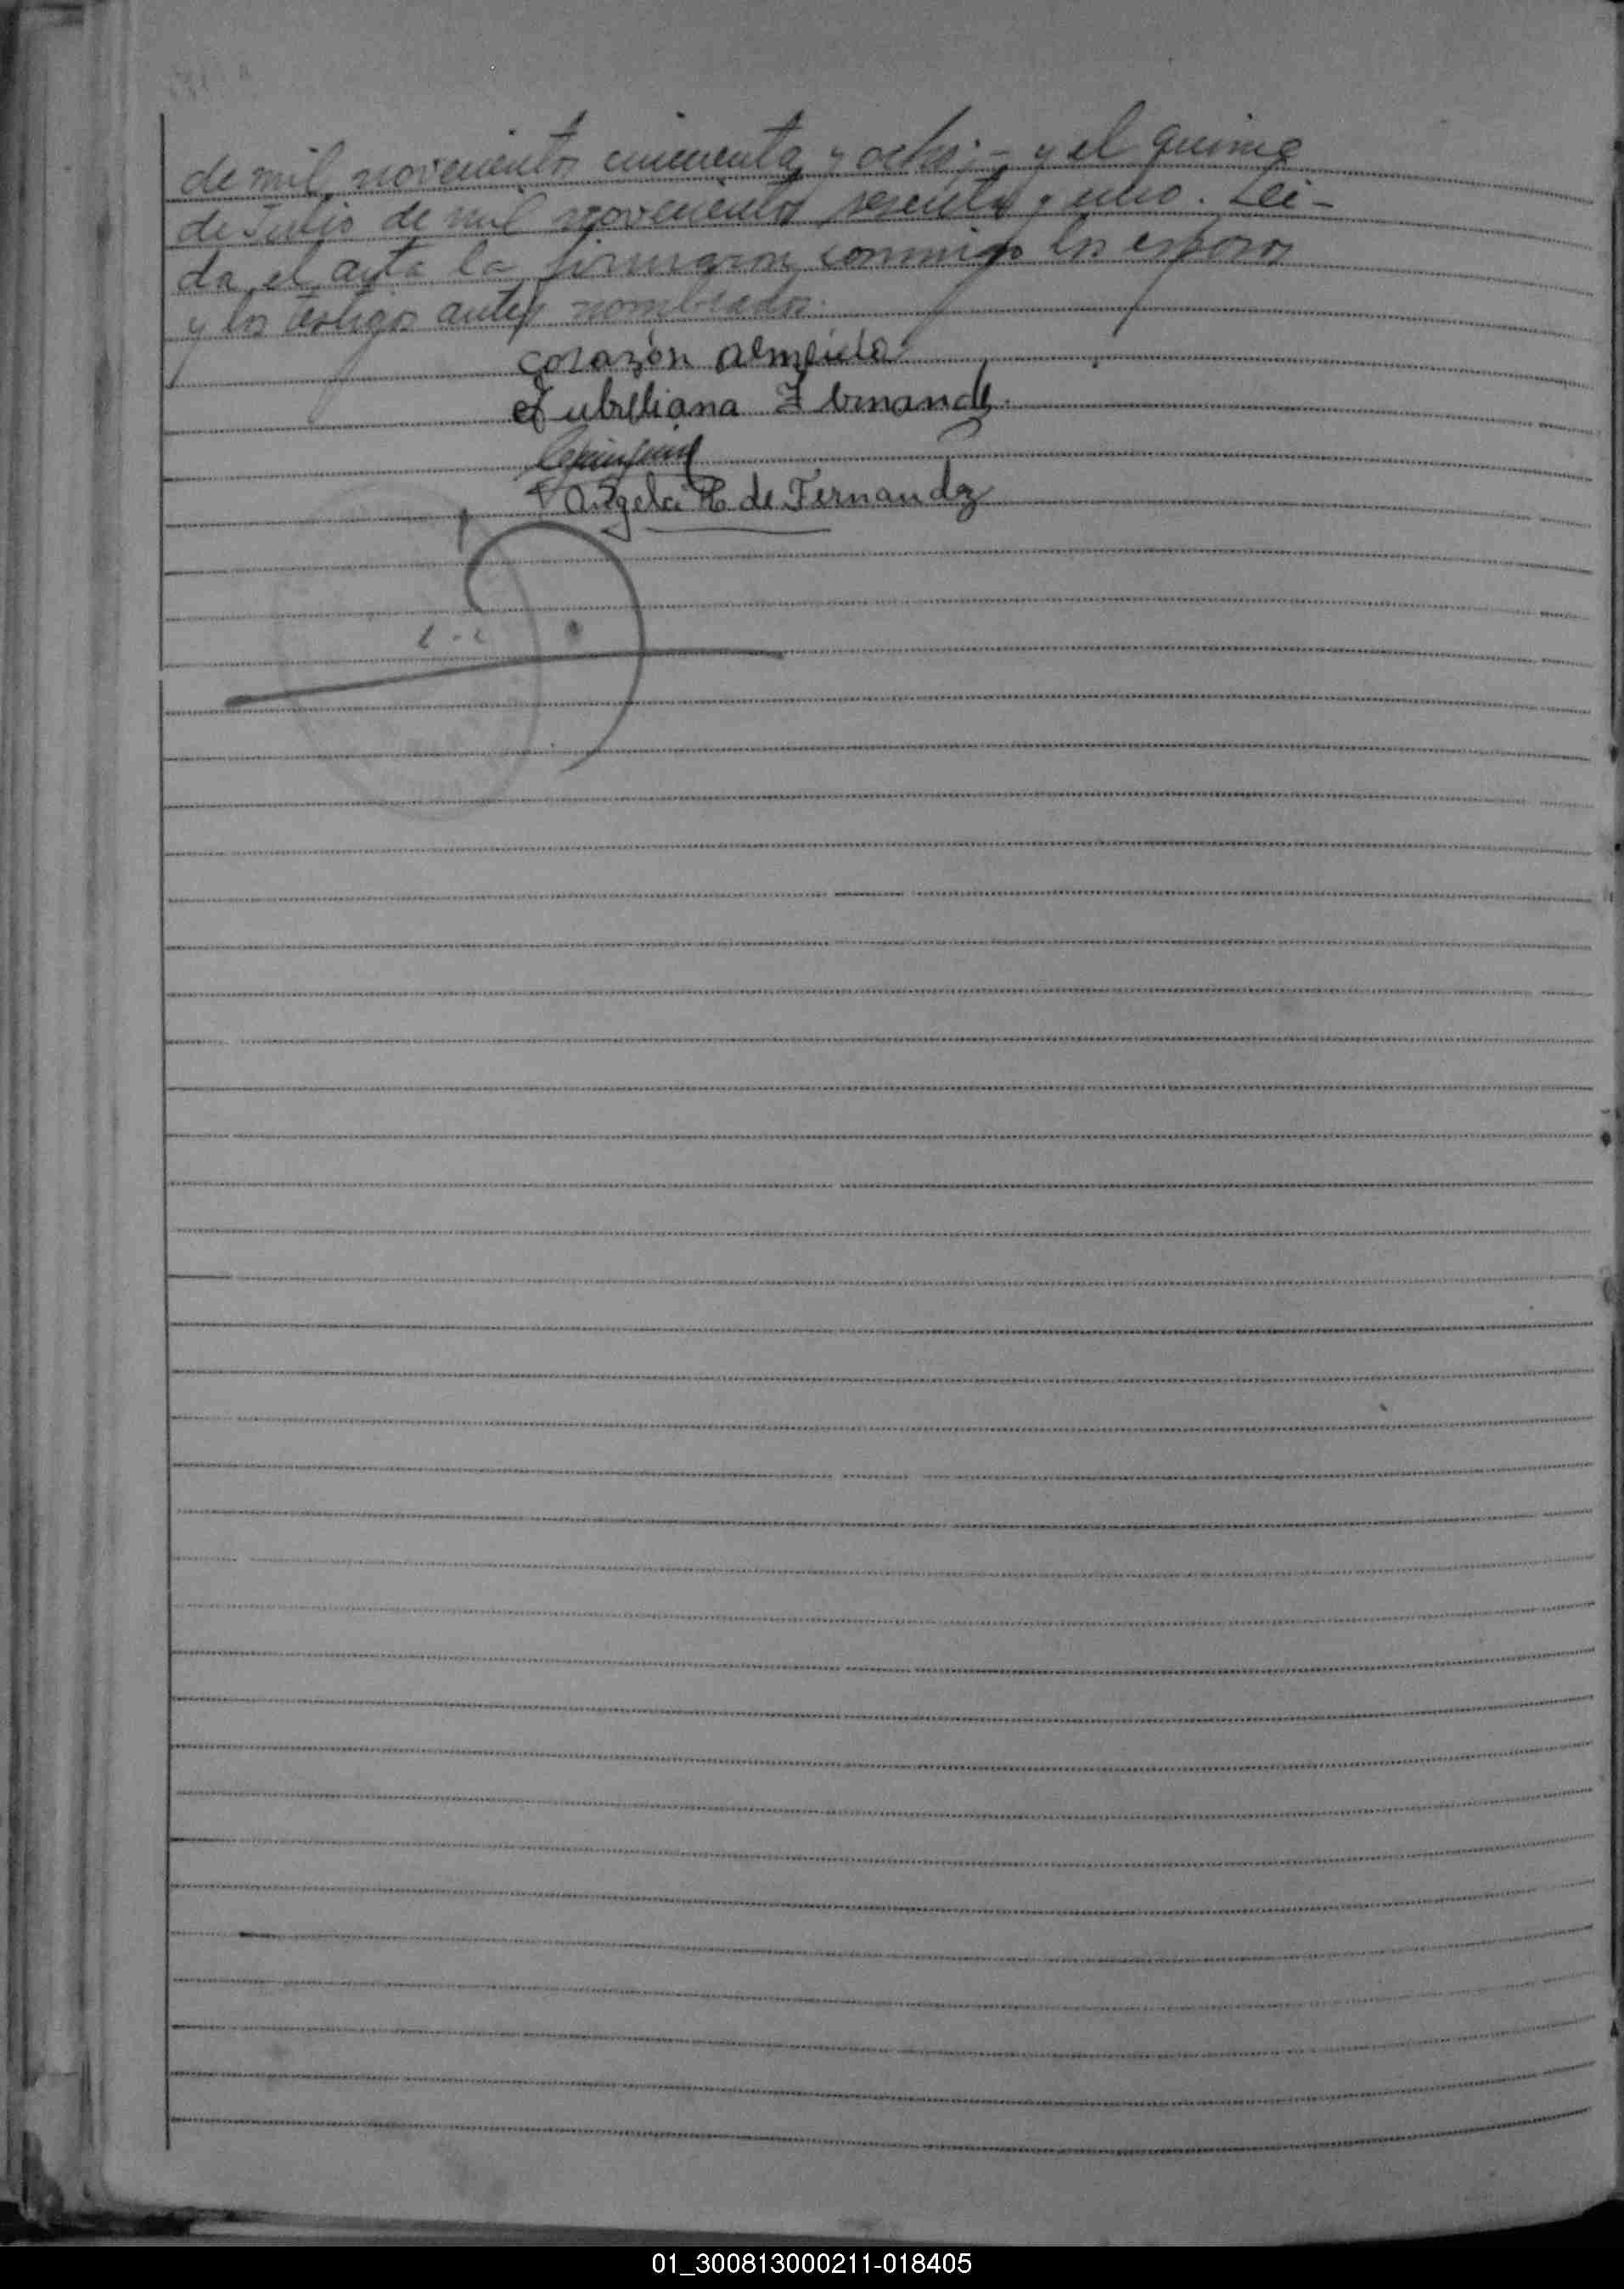 de mil novecientos cincuenta y ocho; - y el quince
de Julio de mil novecientos sesenta y uno. Lei-
da el acta la firmaron conmigo los esposos
y los testigos antes nombrados.
corazón almeida
Fernand
Angela R de Fernandz
01_300813000211-018405